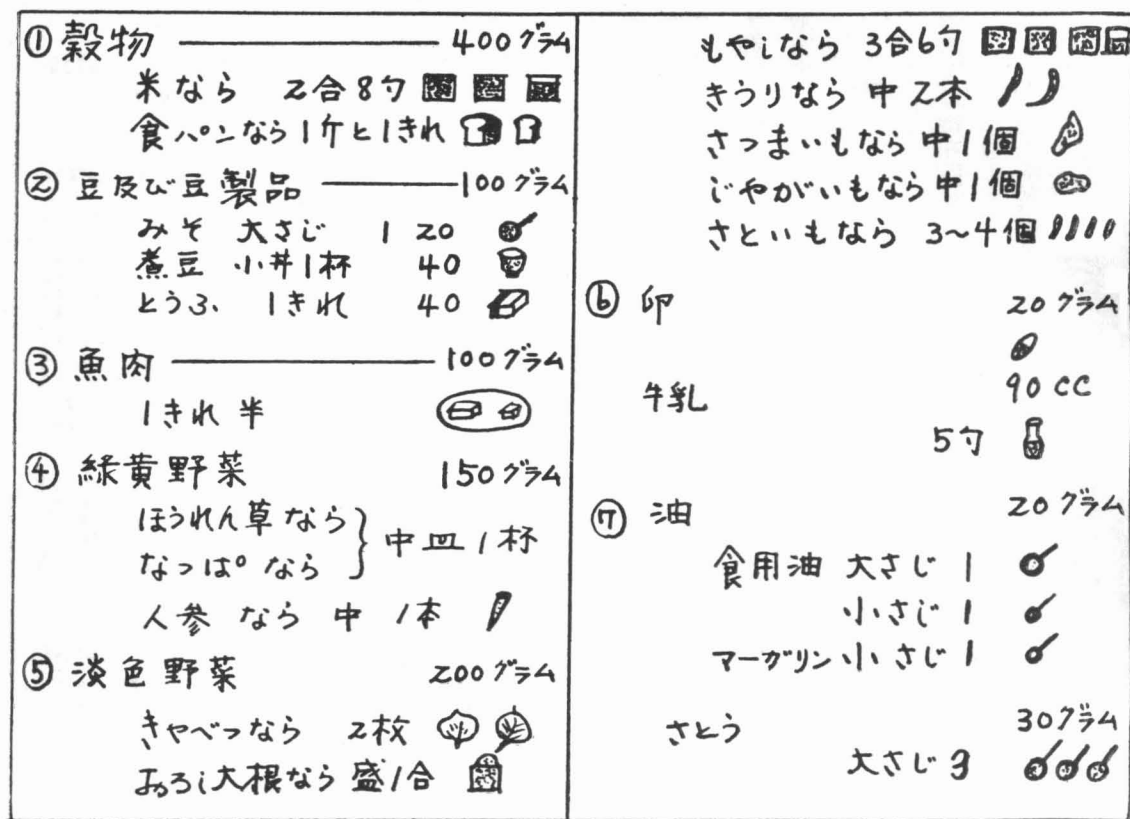 ① 穀物 ———— 400グラム
米なら 2合8勺
食パンなら1ケと1きれ
② 豆及び豆製品 ———— 100グラム
みそ 大さじ 1 20
煮豆 小丼1杯 40
とうふ 1きれ 40
③ 魚肉 ———— 100グラム
1きれ半
④ 緑黄野菜 150グラム
ほうれん草なら
なっぱなら } 中皿1杯
人参なら 中 1本
⑤ 淡色野菜 200グラム
きゃべつなら 2枚
おろし大根なら盛1合
もやしなら 3合6勺
きうりなら 中2本
さつまいもなら 中1個
じゃがいもなら 中1個
さといもなら 3~4個
⑥ 卵 20グラム
牛乳 90CC
5勺
⑦ 油 20グラム
食用油 大さじ 1
小さじ 1
マーガリン小さじ 1
さとう 30グラム
大さじ 3